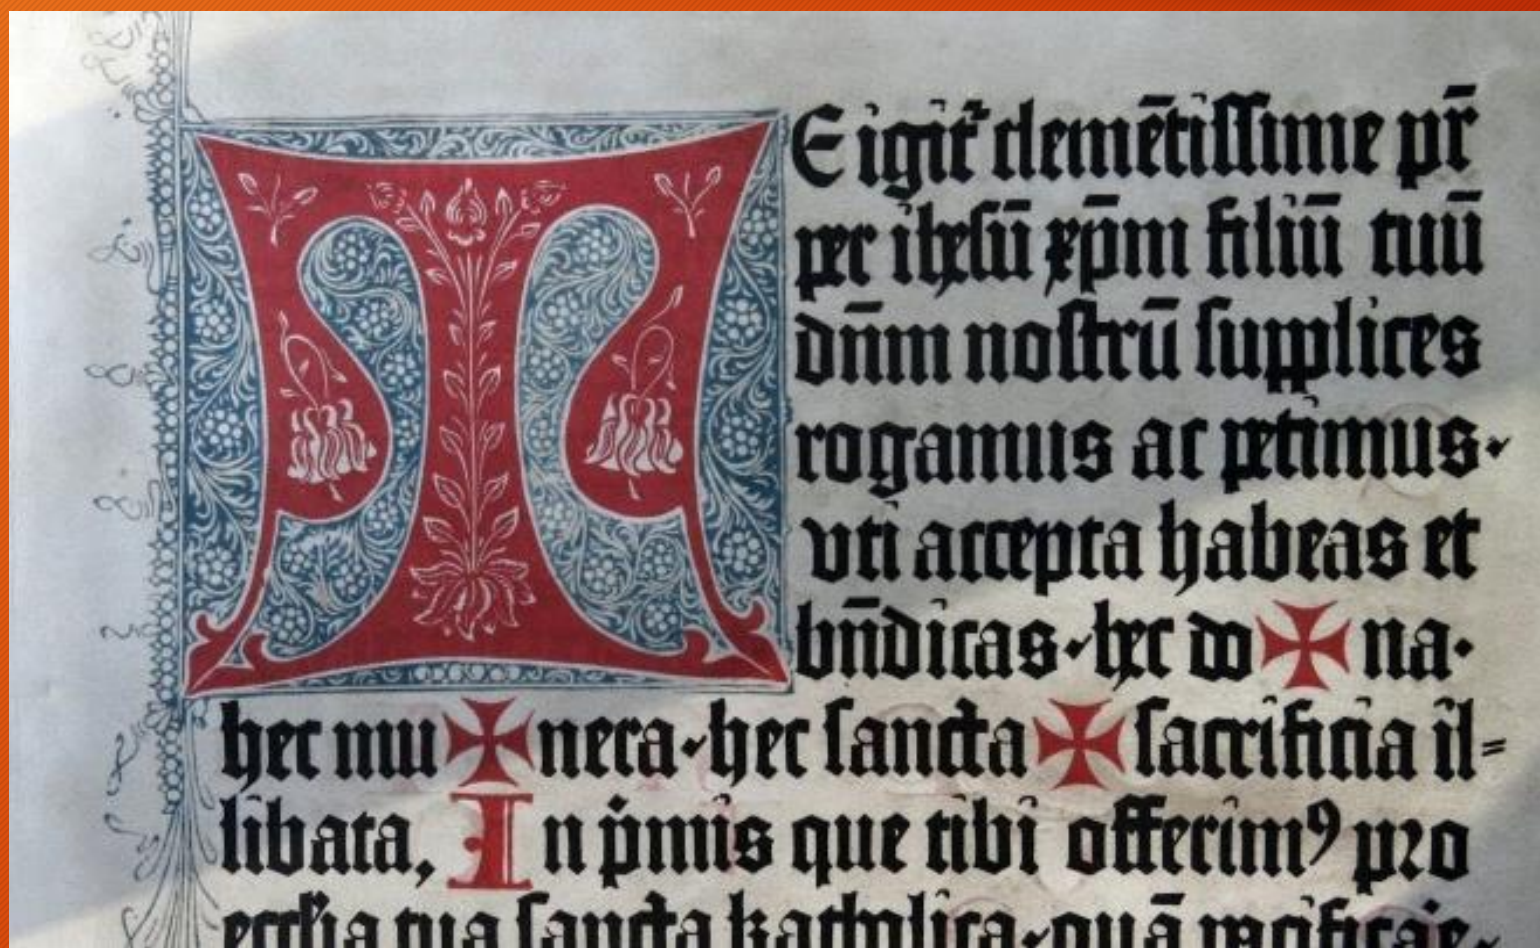 TE igit᷑ clemētissime pr̄
per ihesū xp̄m filiū tuū
dn̄m nostrū supplices
rogamus ac petimus·
vti accepta habeas et
bn̄dicas· hec do✠na·
hec mu✠nera· hec sancta✠sacrificia il=
libata, In p̄mis que tibi offerimꝰ pro
eccl'ia tua sancta katholica· quā pacificare